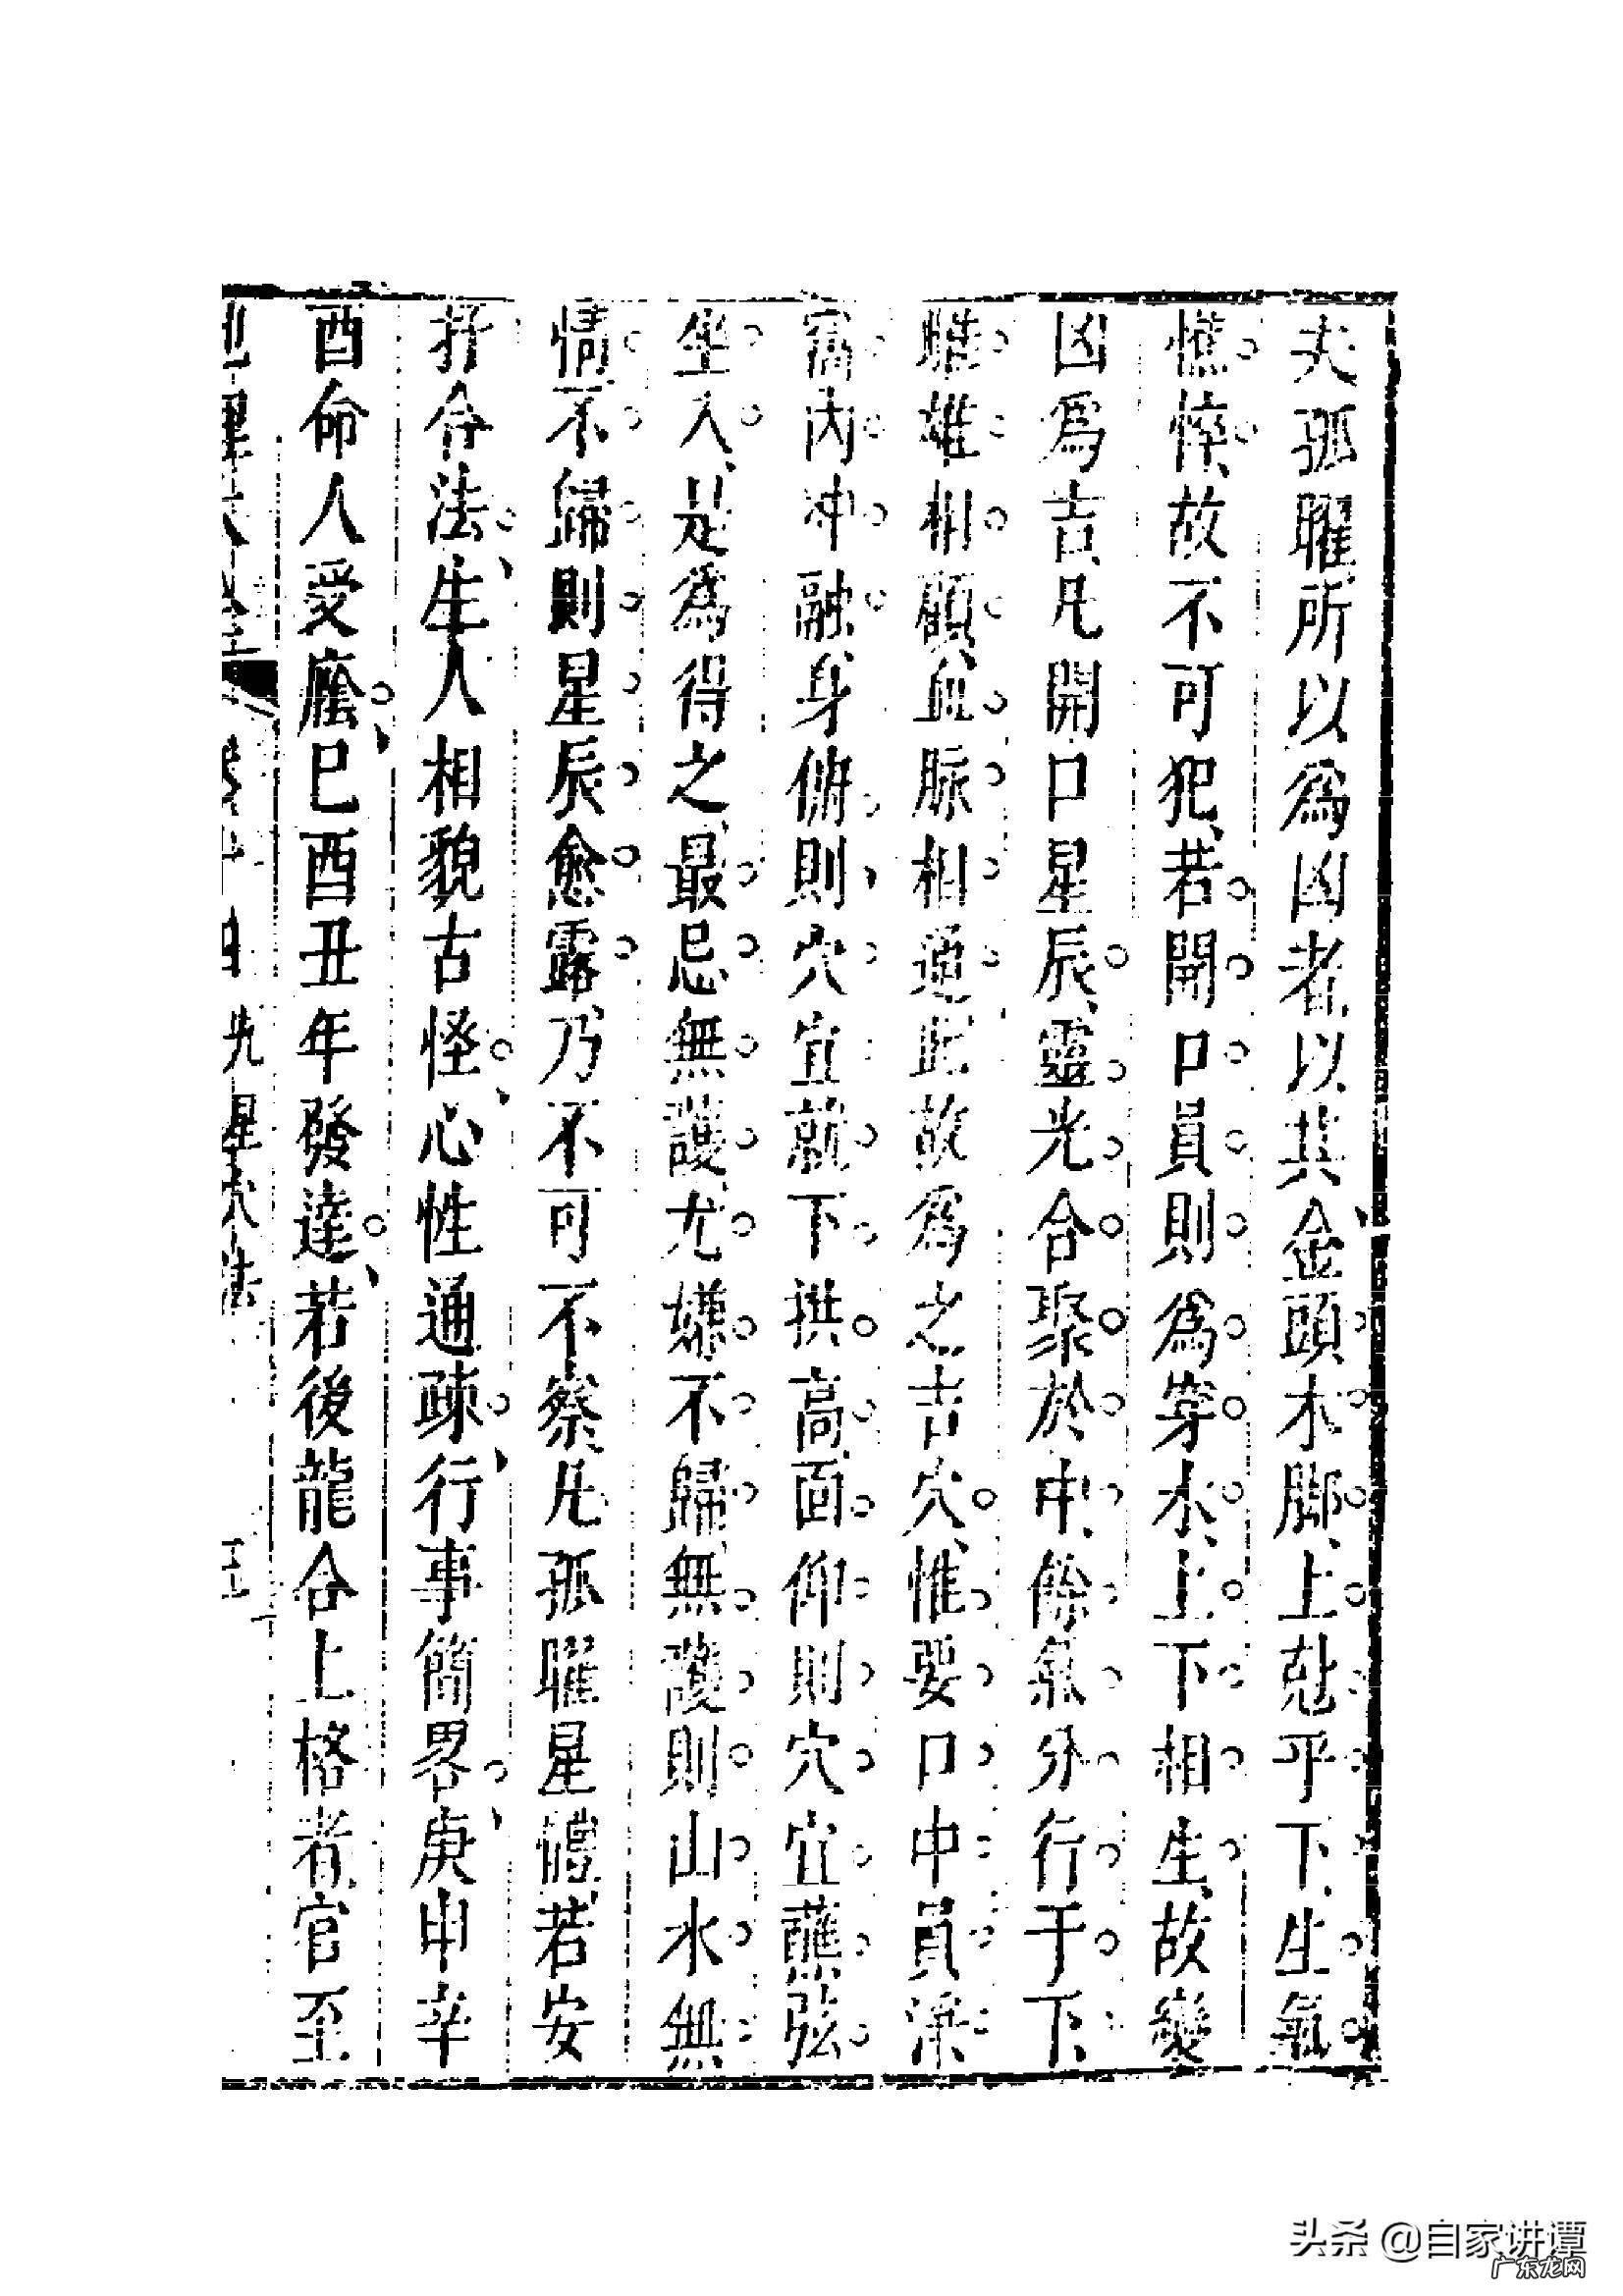 夫孤曜所以爲凶者以其金頭木脚上尅乎下生氣
憔悴故不可犯若開口員則爲穿水上下相生故變
凶爲吉凡開口星辰靈光合聚於中餘氣分行于下
雌雄相顧血脉相通此故爲之吉穴惟要口中員淨
窩內冲融身俯則穴宜就下拱高面仰則穴宜蘸弦
坐入是爲得之最忌無護尤嫌不歸無護則山水無
情不歸則星辰愈露乃不可不察凡孤曜星體若安
扦合法生人相貌古怪心性通疎行事簡畧庚申辛
酉命人受廕巳酉丑年發達若後龍合上格者官至
地理大全 卷十四 星穴法
头条 @自家讲谭
广东龙网